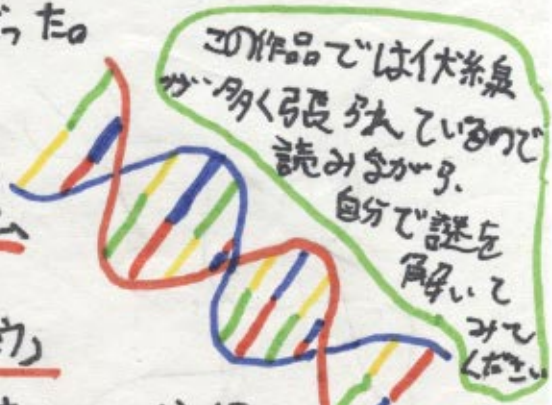 った。
この作品では伏線
が多く張られているので
読みながら、
自分で謎を
解いて
みて
ください
ム
ウ」